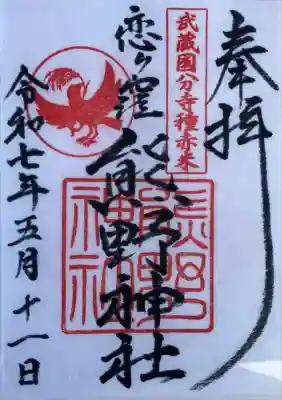 奉拝
武蔵国分寺種赤米
恋ヶ窪
熊野神社
熊野神社
令和七年五月十一日